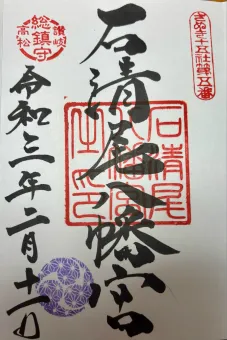 さぬき十五社第五番
讃岐
総鎮守
高松
石清尾八幡宮
石清尾八幡宮之印
令和三年二月十一日